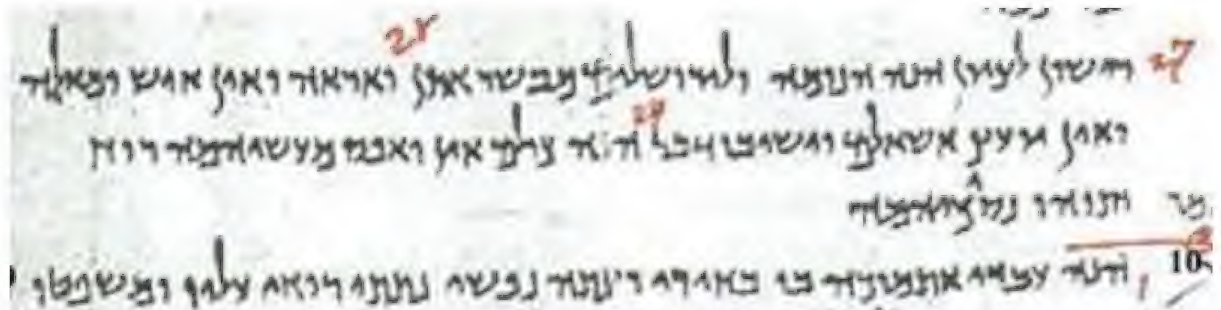 27 לציון הנה הנומה ולירושלים מבשר אתן 28 ואראה ואין איש ומאלה
ואין יועץ אשאלם וישיבו דבר 29 הנה כולם אין ואפס מעשיהמה רוח
ותוהו נסכיהמה
10 הנה עבדי אתמוכה בו בחירי רצתה נפשי נתתי רוחי עליו ומשפטו